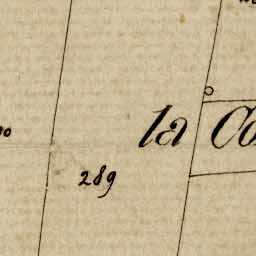 la Co
289